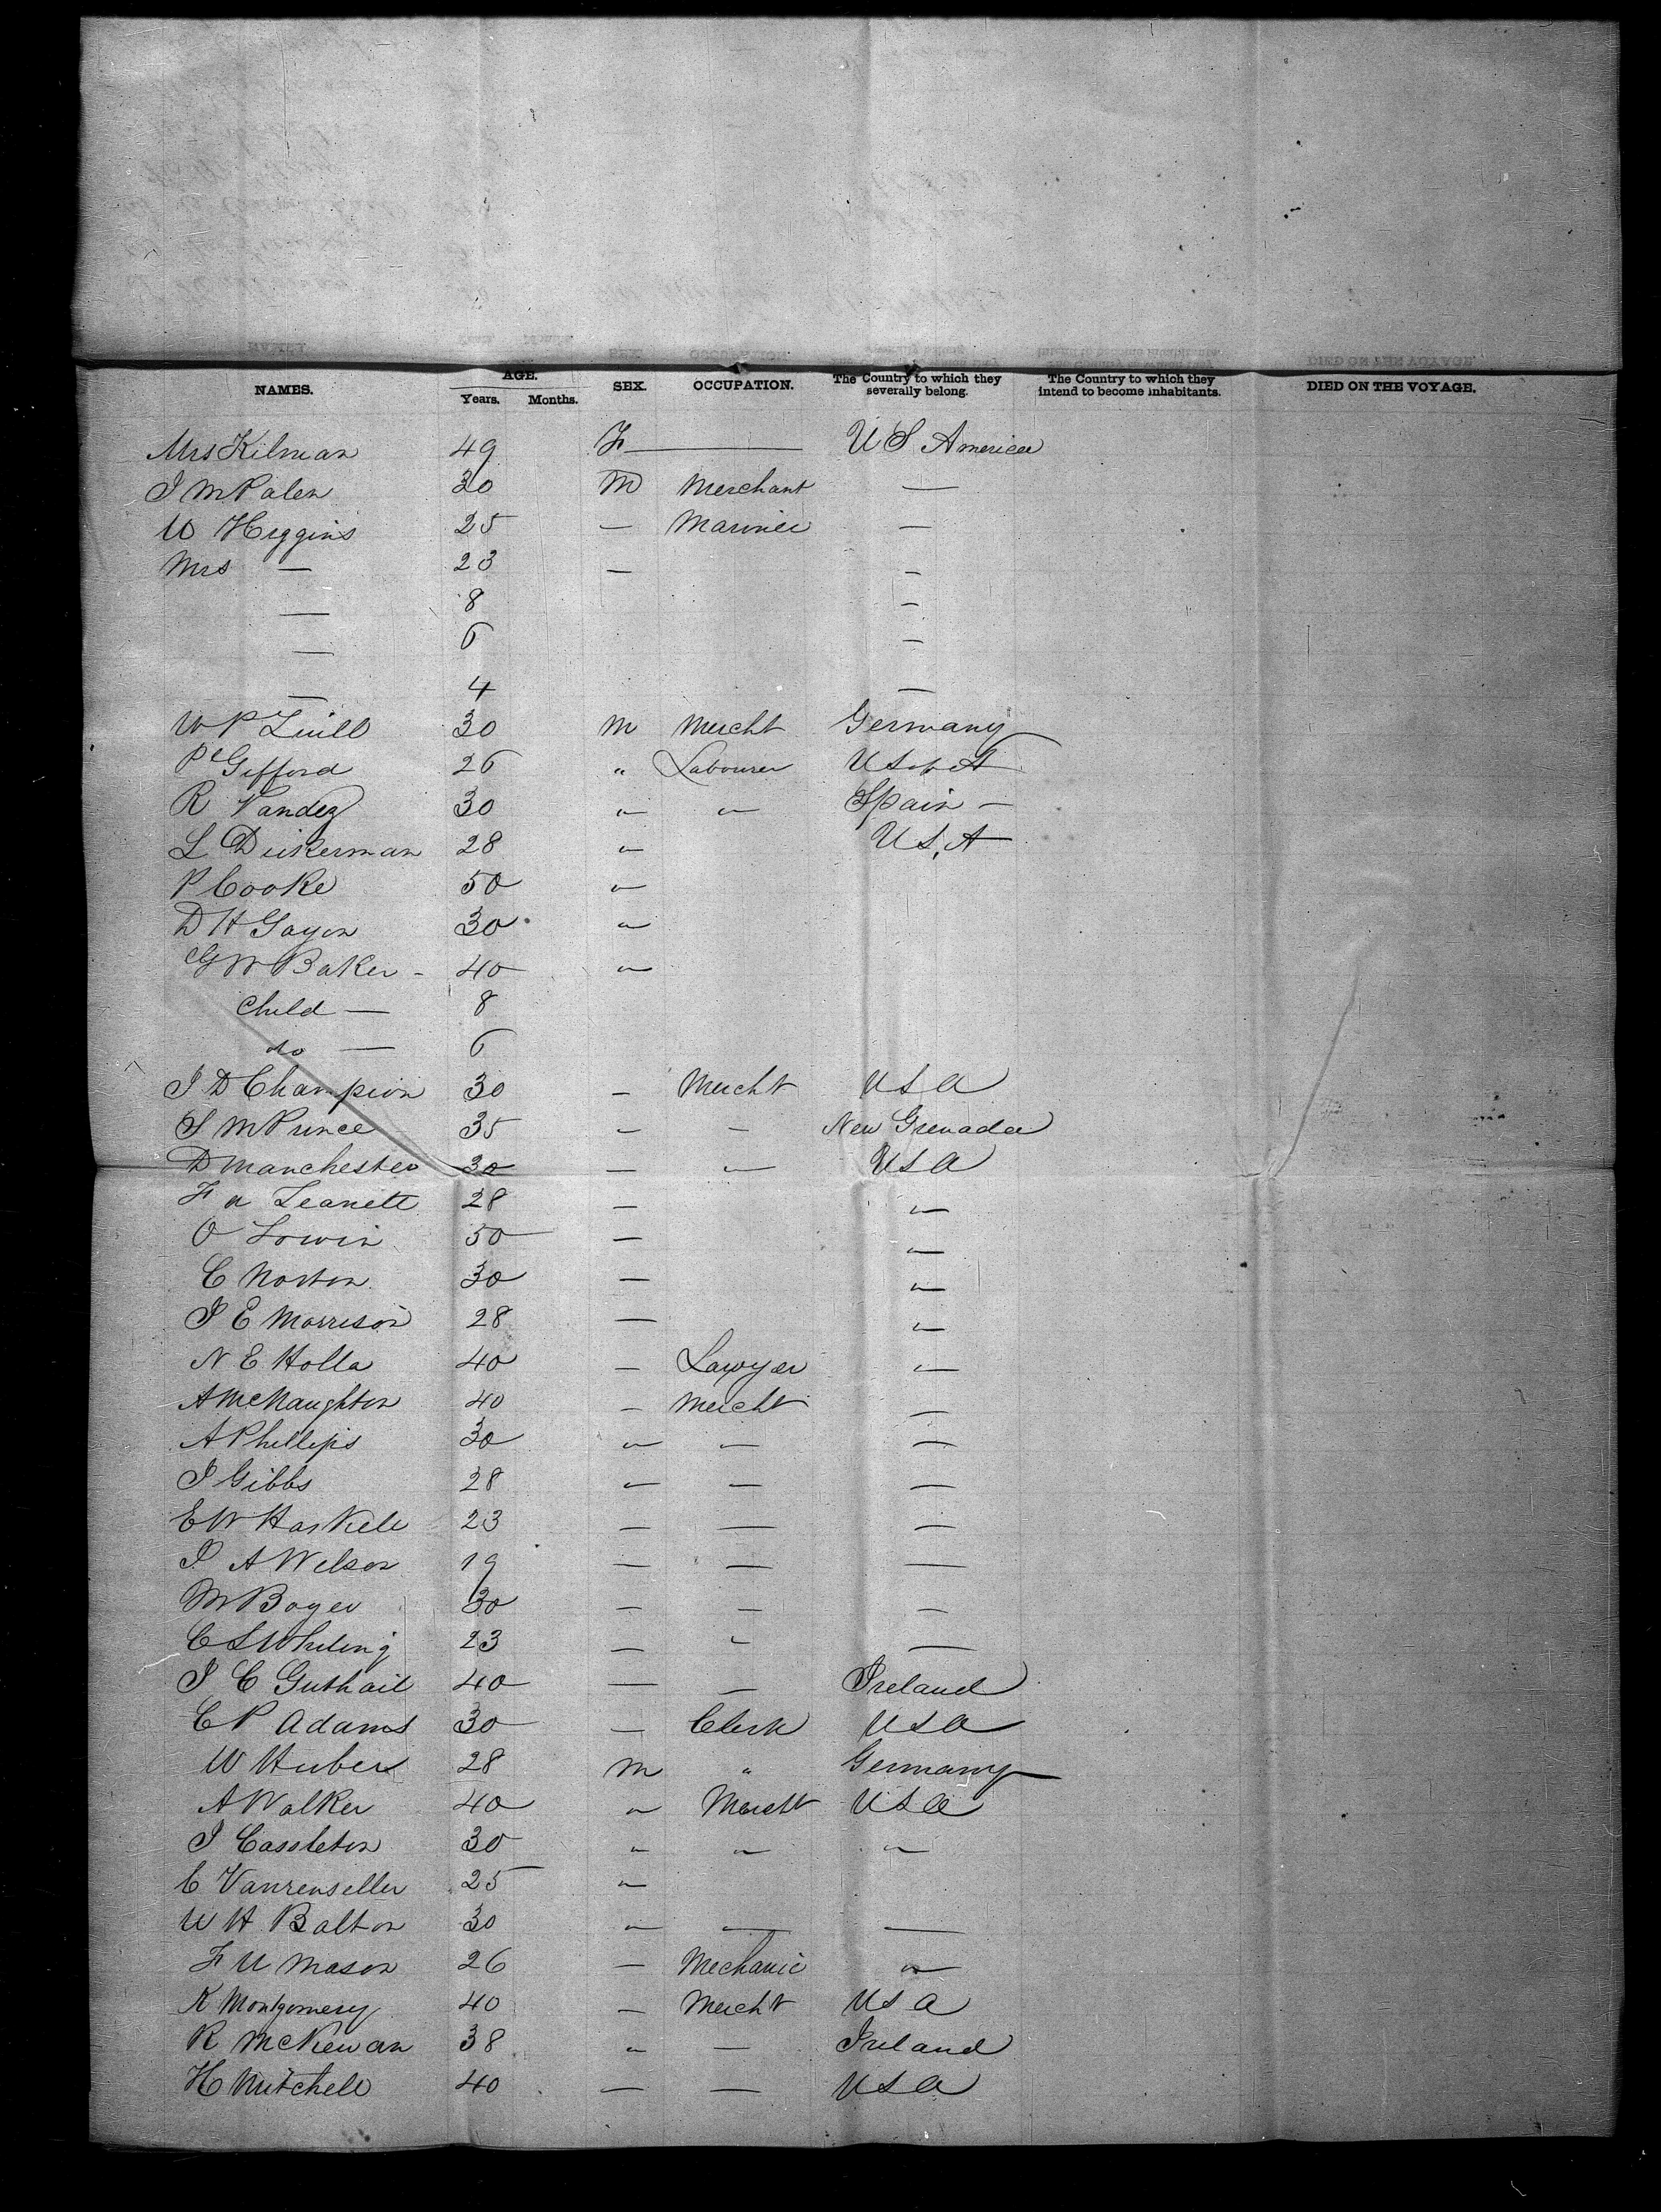 NAMES. AGE. Years. Months. SEX. OCCUPATION. The Country to which they severally belong. The Country to which they intend to become inhabitants. DIED ON THE VOYAGE.
Mrs Kilman 49 F — U S America
J M Palen 30 M Merchant —
W Higgins 25 — Mariner —
Mrs — 23 — —
— 8 —
— 6 —
— 4 —
W P Zuill 30 M Mercht Germany
Gifford 26 " Labourer US of A
R Vandez 30 " " Spain —
L Dickerman 28 " U S, A
P Cooke 50 "
D H Gayon 30 "
G W Baker - 40 "
Child — 8
do — 6
J D Champion 30 — Mercht U S A
S M Prince 35 — — New Grenada
D Manchester 30 — — U S A
F A Leanett 28 — —
O Lowin 50 — —
C Norton 30 — —
J E Morrison 28 — —
N E Holla 40 — Lawyer —
A McNaughton 40 — Mercht —
A Phillips 30 — — —
J Gibbs 28 — — —
E W Haskell 23 — — —
J. A Wilson 19 — — —
M Boyer 30 — — —
C S Whiting 23 — — —
J C Guthail 40 — — Ireland
C P Adams 30 — Clerk U S A
W Huber 28 M " Germany
A Walker 40 " Mercht U S A
J Cassleton 30 " " "
C Vanrenseller 25 "
W H Balton 30 " — —
F U Mason 26 — Mechanic "
K Montgomery 40 — Mercht U S A
R McKewan 38 " — Ireland
H Mitchell 40 — — U S A